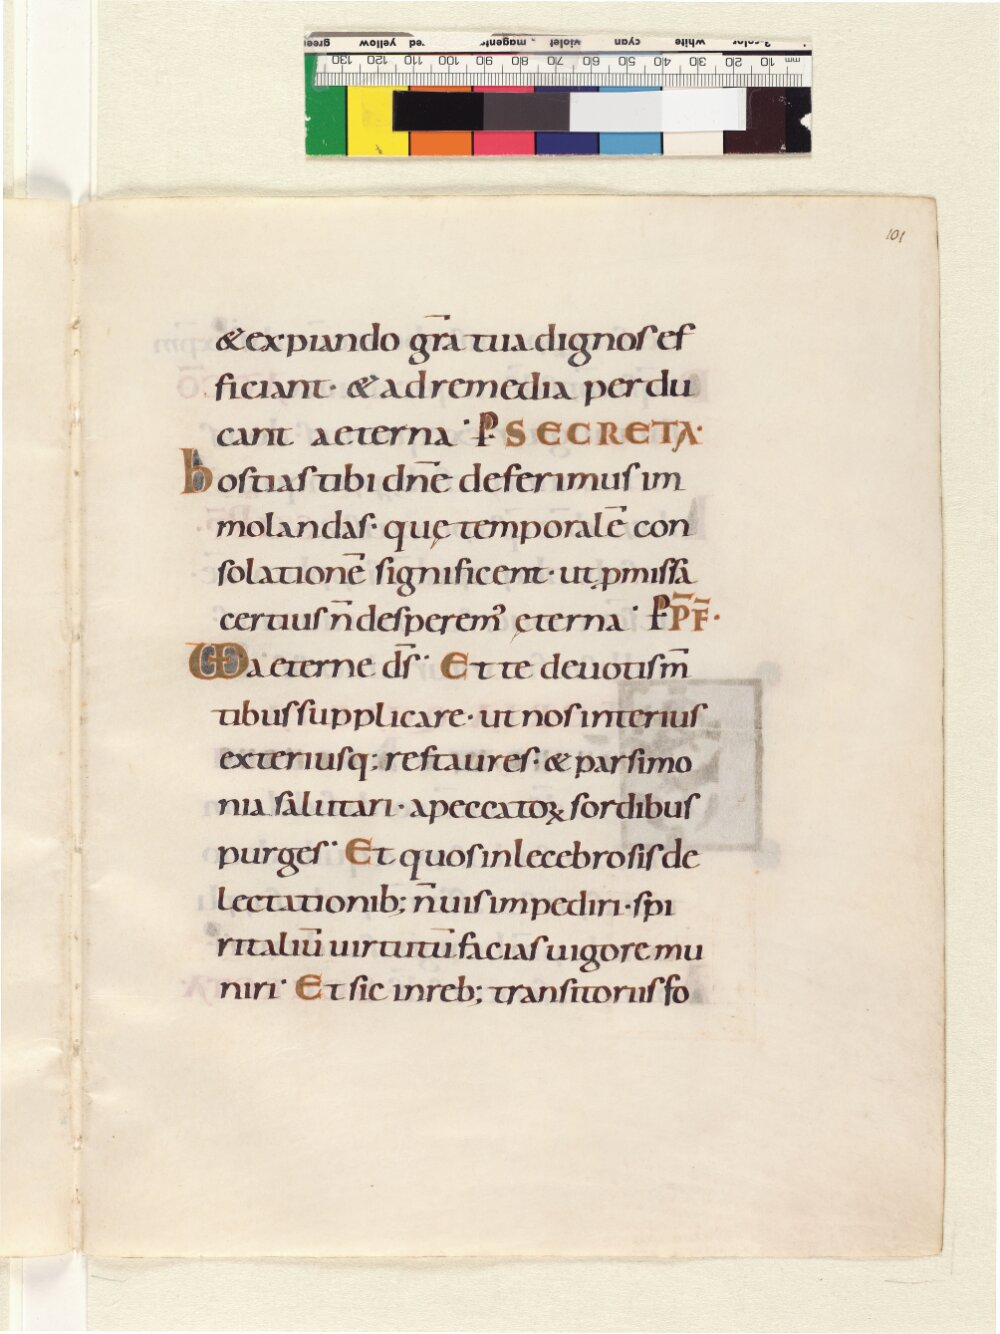 101
& expiando gr̄a tua dignos ef
ficiant· & ad remedia perdu
cant aeterna· P SECRETA·
hostias tibi dn̄e deferimus im
molandas· quę temporalē con
solationē significent· ut ꝓmissa
certius n̄ desperem᾽ ęterna· P P̄F̄·
VD aeterne ds̄· Et te deuotis m̄
tibus supplicare· ut nos interius
exteriusq; restaures· & parsimo
nia salutari· a peccatoꝝ sordibus
purges· Et quos inlecebrosis de
lectationib; n̄ uis impediri· spi
ritaliū uirtutū facias uigore mu
niri· Et sic in reb; transitoriis fo